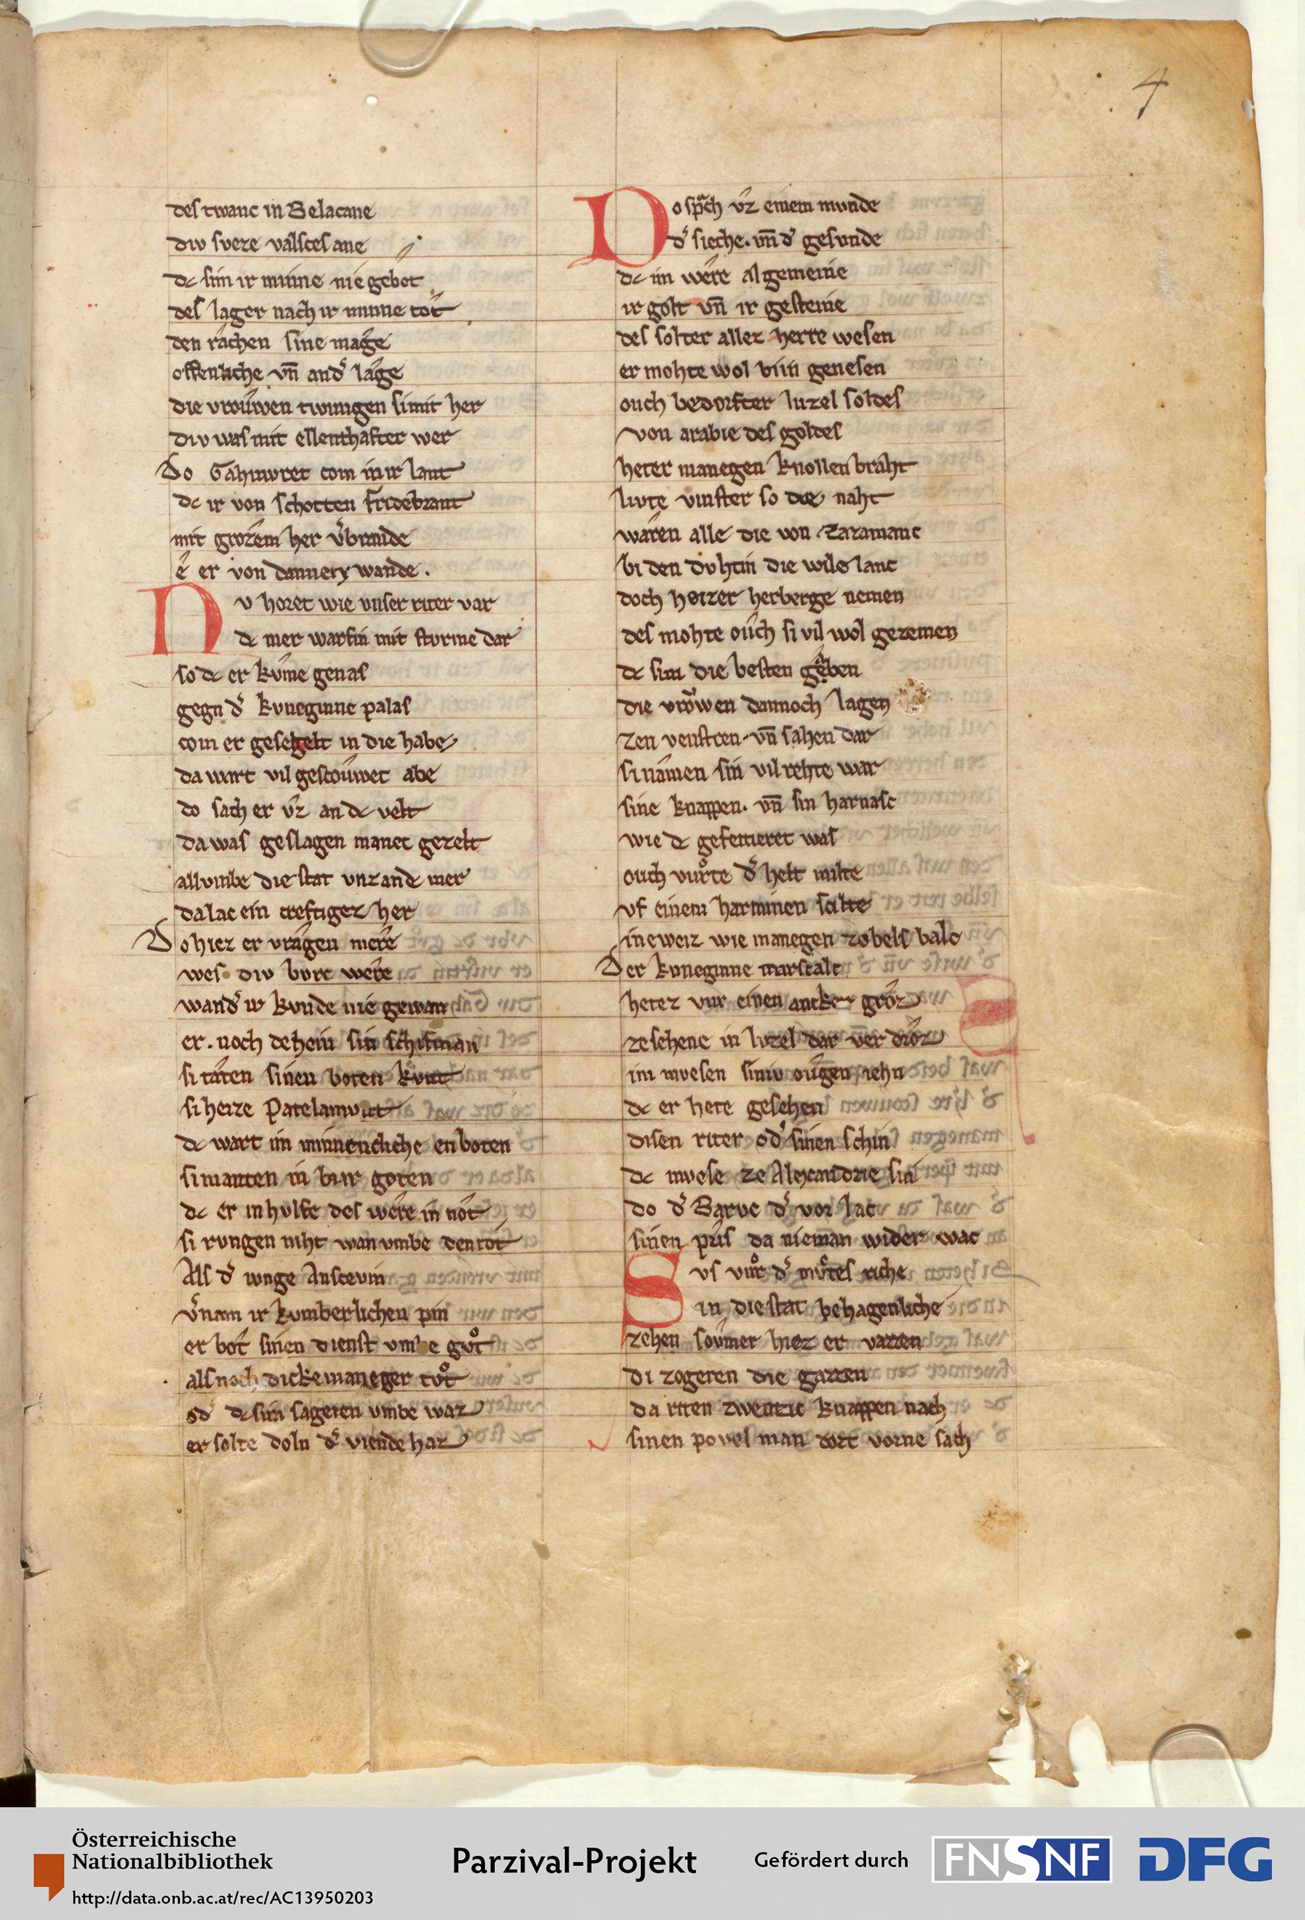 4
des twanc in Belacane
div sveze valsces ane
dc sim ir minne nie gebot
des lager nach ir minne tot
den rachen sine mage
offenliche vn̄ and͛ lage
die vrouwen twungen si mit her
div was mit ellenthafter wer
Do Gahmvret com in ir lant
dc ir von schotten Fridebrant
mit grozem her v͛brande
ê er von dannen wande.
Nv horet wie vnser riter var
dc mer warf in mit stvrme dar
so dc er kvme genas
gegn d͛ kvneginne palas
com er gesegelt in die habe
da wart vil gescouwet abe
do sach er vz an dc velt
da was geslagen manec gezelt
all vmbe die stat vnz an de mer
da lac ein creftigez her
Do hiez er vragen mere
wes div bvrc were
wand͛ ir kvnde nie gewan
er. noch dehein sin schifman
si taten sinen boten kvnt
si heize Patelamvnt
dc wart im minnencliche enboten
si manten in bi ir goten
dc er in hvlfe des were in not
si rvngen niht wan vmbe den tot
Als d͛ ivnge Anscevin
v͛nam ir kvmberlichen pin
er bot sinen dienst vmbe gvͦt
als noch dicke maneger tvͦt
od͛ dc sim sageten vmbe waz
er solte doln d͛ viende haz
Do sprach vz einem mvnde
d͛ sieche. vn̄ d͛ gesvnde
dc im were al gemeine
ir golt vn̄ ir gesteine
des solter allez herre wesen
er mohte wol bi in genesen
ouch bedorfter lvzel soldes
von arabie des goldes
heter manegen knollen braht
livte vinster so die naht
waren alle die von zazamanc
bi den dvht in die wile lanc
doch hiezer herberge nemen
des mohte ouch si vil wol gezemen
dc sim die besten gaben
die vrowen dannoch lagen
zen venstren. vn̄ sahen dar
si namen sin vil rehte war
sine knappen. vn̄ sin harnasc
wie dc gefeitieret was
ouch vuͦrte d͛ helt milte
vf einem harminen scilte
ine weiz wie manegen zobels balc
Der kvneginne marscalc
hetez vur einen ancker groz
ze sehene in lvzel dar ver droz
im mvesen siniv ougen iehn
dc er hete gesehen
disen riter od͛ sinen schin
dc mvese ze Alexandrie sin
do d͛ Baruc d͛ vor lac
sinen pris da nieman wider wac
Svs vuͦr d͛ mvͦtes riche
in die stat behagenliche
zehen soumer hiez er vazzen
di zogeten die gazzen
da riten zwenzic knappen nach
sinen povel man dort vorne sach
Österreichische
Nationalbibliothek
http://data.onb.ac.at/rec/AC13950203
Parzival-Projekt
Gefördert durch
FNSNF
DFG